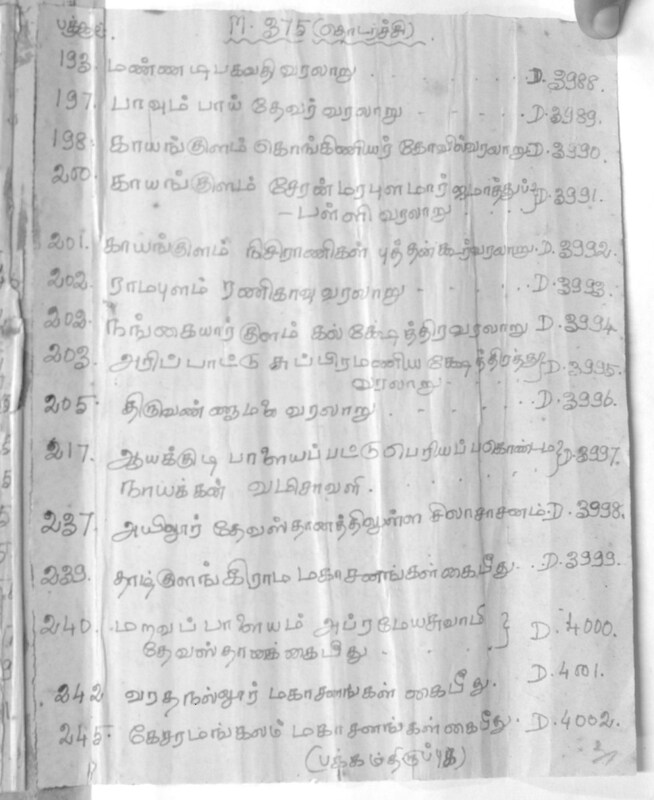 பக்கம். M. 375 (தொடர்ச்சி)
193. மண்ணடிபகவதி வரலாறு . . . . . D. 3988.
197. பாவும் பாய் தேவர் வரலாறு - - - - - D. 3989.
198. காயங்குளம் கொங்கிணியர் கோவில்வரலாறு D. 3990.
200. காயங்குளம் சேரன்மரபுளமார் D. 3991.
- பள்ளி வரலாறு . . .
201. காயங்குளம் நிசிராணிகள் புத்தன்கூர்வரலாறு. D. 3992.
202. ராமபுளம் ரணிகாவு வரலாறு - - . . . D. 3993.
202. நங்கையார்குளம் கல் க்ஷேத்திரவரலாறு D. 3994.
203. அரிப்பாட்டு சுப்பிரமணிய க்ஷேத்திரத்து } D. 3995.
வரலாறு - . . .
205. திருவண்ணாமலை வரலாறு . . . . . D. 3996.
217. ஆயக்குடி பாளையப்பட்டு பெரியப்பகொண்டம } D. 3997.
நாயக்கன் வமிசாவளி . . . . .
237. அயிலூர் தேவஸ்தானத்திலுள்ள சிலாசாசனம். D. 3998.
239. தாடிகுளங்கிராம மகாசனங்கள் கைபீது. . D. 3999.
240. மறவப்பாளையம் அப்ரமேயசுவாமி } D. 4000.
தேவஸ்தான கைபீது . . . .
242 வரதநல்லூர் மகாசனங்கள் கைபீது. D. 4001.
245. கேசரமங்கலம் மகாசனங்கள் கைபீது. D. 4002.
(பக்கம்திருப்புக)